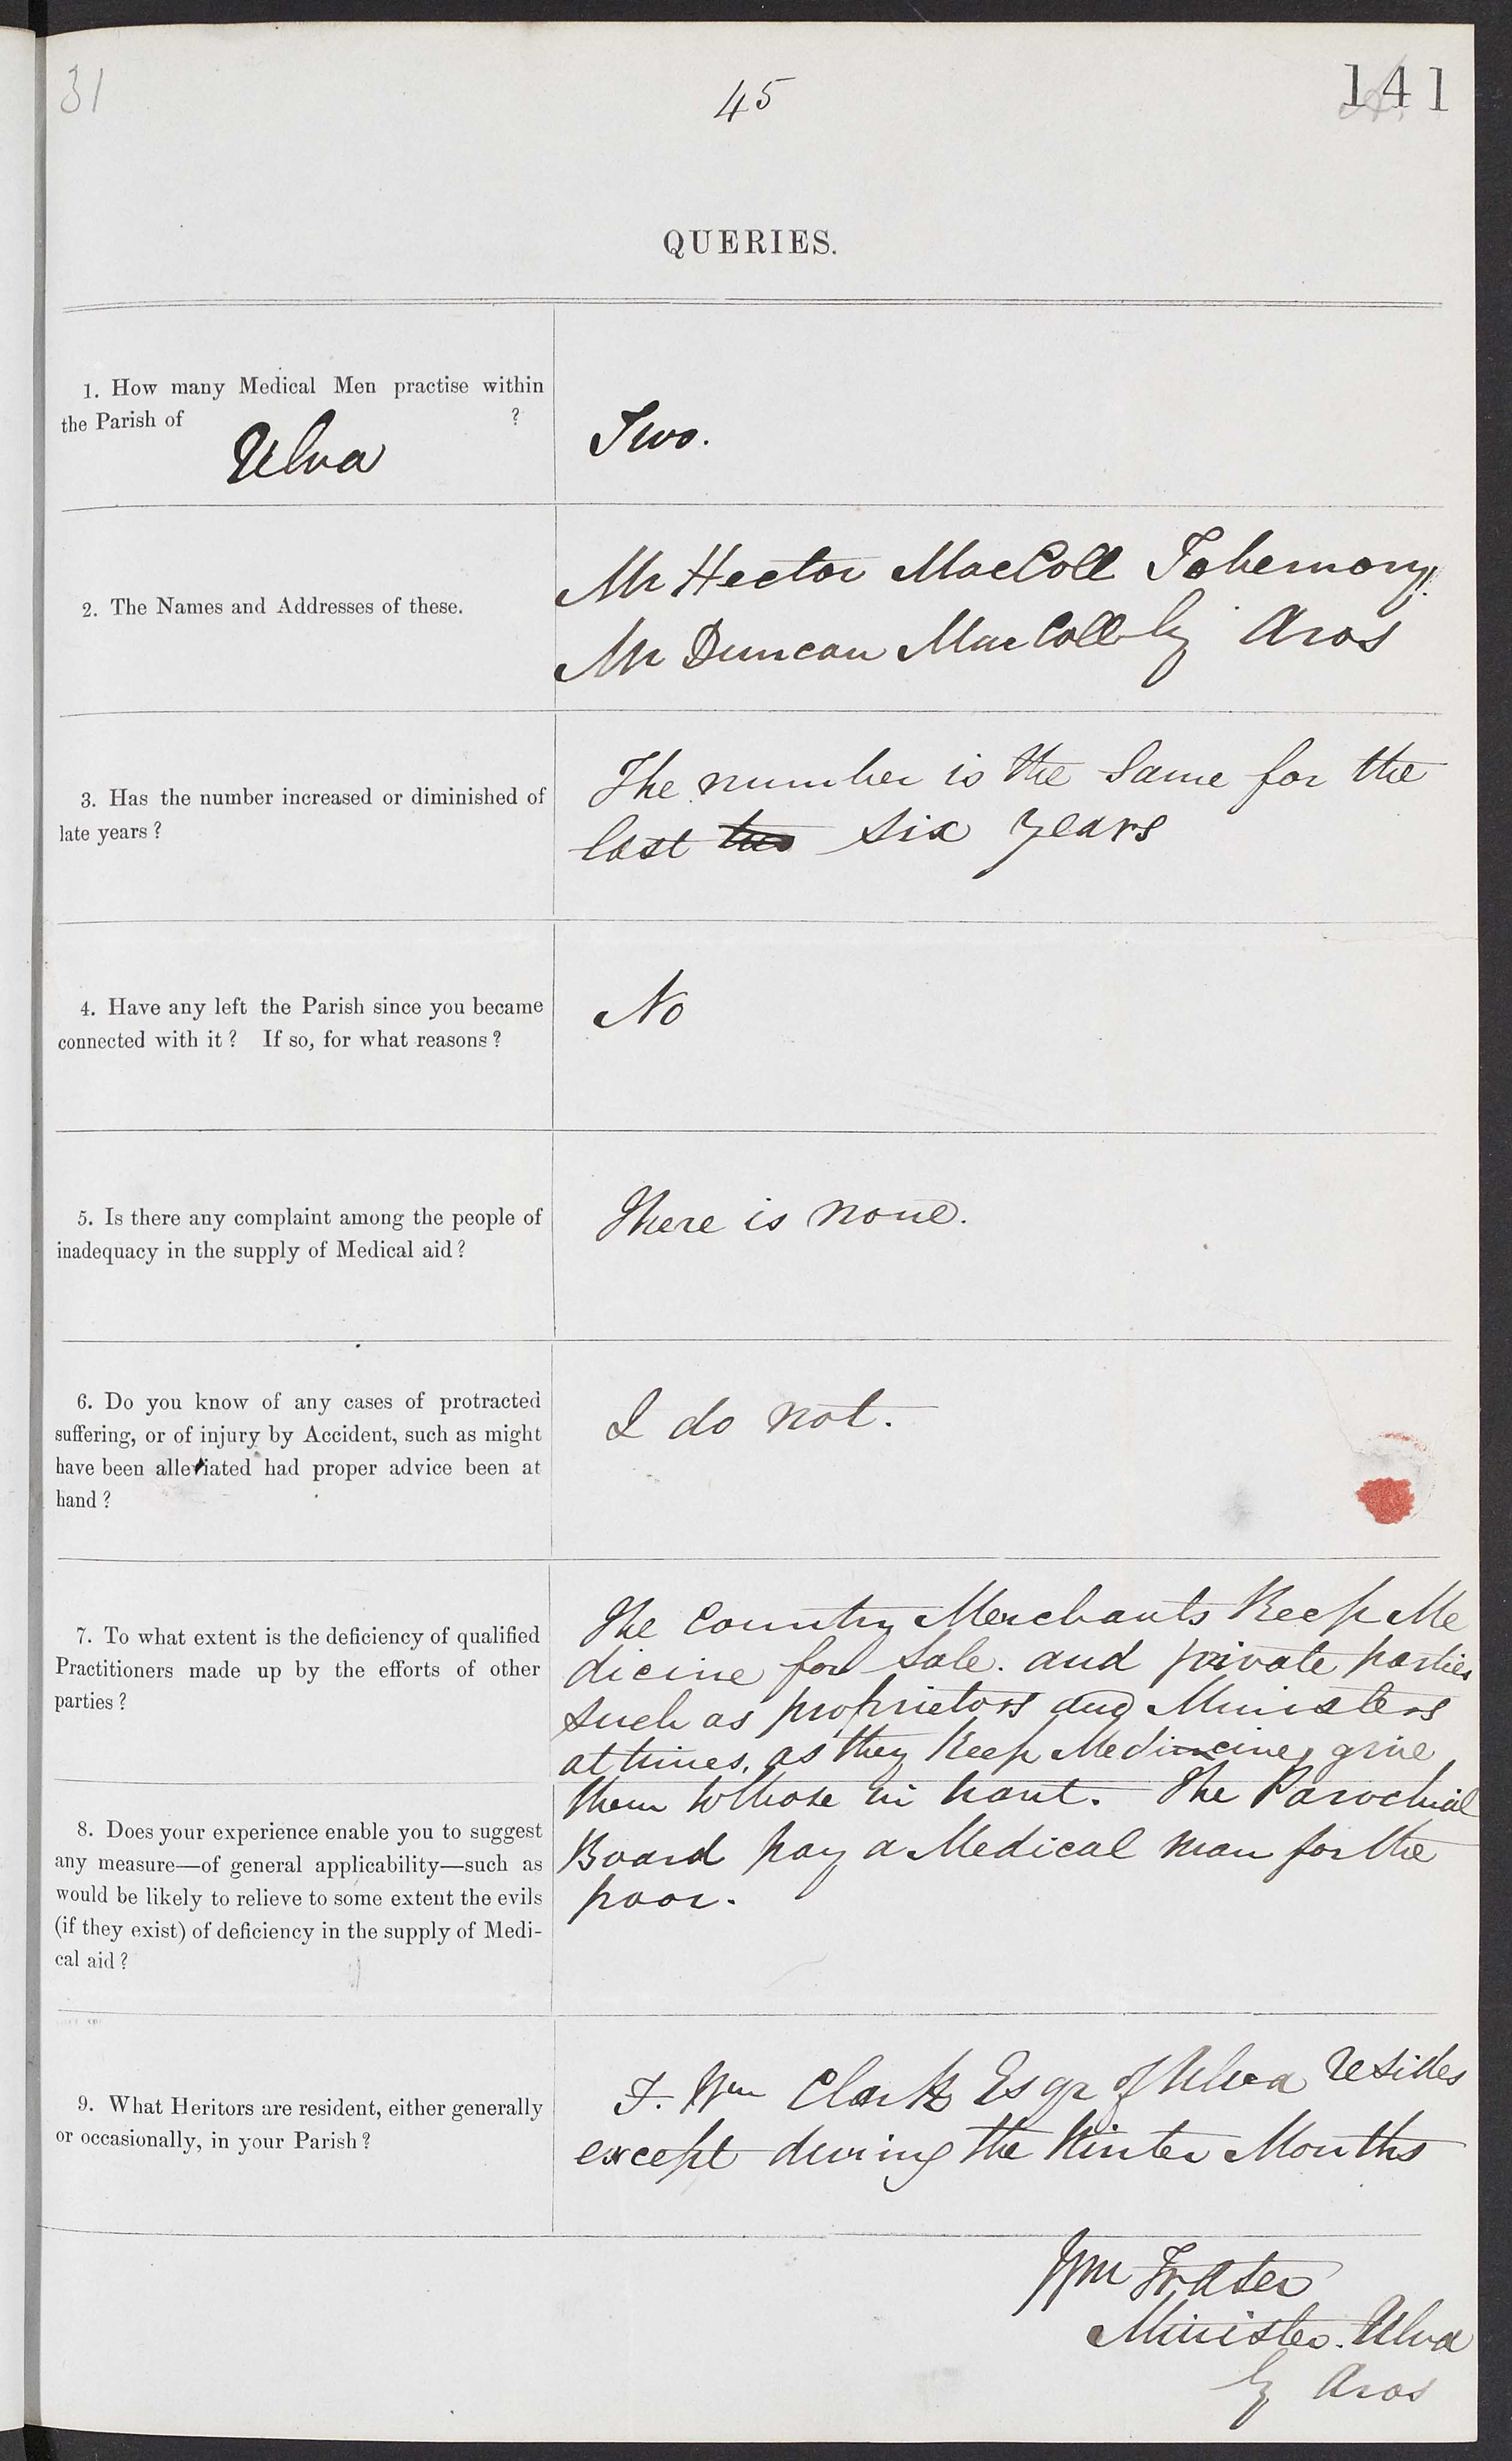 31
45
141
QUERIES.
1. How many Medical Men practise within
the Parish of ?
Ulva
Two.
2. The Names and Addresses of these.
Mr Hector MacColl Tobermory.
Mr Duncan MacColl by Aros
3. Has the number increased or diminished of
late years?
The number is the Same for the
last two six years
4. Have any left the Parish since you became
connected with it? If so, for what reasons?
No
5. Is there any complaint among the people of
inadequacy in the supply of Medical aid?
There is none.
6. Do you know of any cases of protracted
suffering, or of injury by Accident, such as might
have been alleviated had proper advice been at
hand?
I do not.
7. To what extent is the deficiency of qualified
Practitioners made up by the efforts of other
parties?
The Country Merchants Keep Me
dicine for Sale. and private parties
such as proprietors and Ministers
at times, as they Keep Medicine, give
them to those in want. The Parochial
Board pay a Medical man for the
poor.
8. Does your experience enable you to suggest
any measure—of general applicability—such as
would be likely to relieve to some extent the evils
(if they exist) of deficiency in the supply of Medi-
cal aid?
9. What Heritors are resident, either generally
or occasionally, in your Parish?
F. Wm Clark Esqr of Ulva resides
except during the Winter Months
Wm Fraser
Minister. Ulva
by Aros